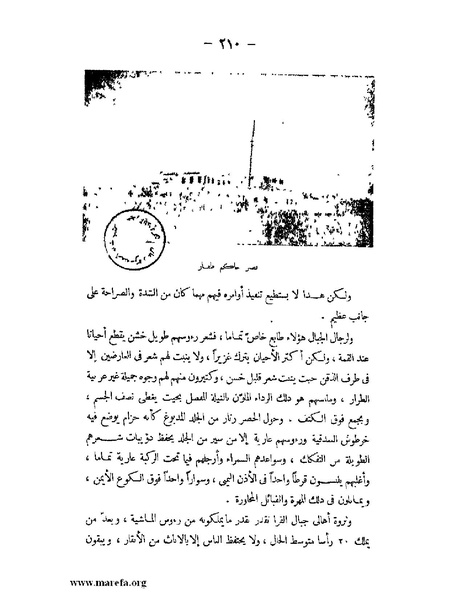 — ٢١٠ —
قصر حاكم ظفار
ولكن هذا لا يستطيع تنفيذ أوامره فيهم مهما كان من الشدة والصراحة على
جانب عظيم .
ولرجال الجبال هؤلاء طابع خاص تماما ، فشعر رءوسهم طويل خشن يقطع أحيانا
عند القمة ، ولكن أكثر الأحيان يترك غزيراً ، ولا ينبت لهم شعر فى العارضين إلا
فى طرف الذقن حيث ينبت شعر قليل خسن ، وكثيرون منهم لهم وجوه جميلة غير عربية
الطراز ، وملبسهم هو ذلك الرداء الملون بالنيلة المفصل بحيث يغطى نصف الجسم ،
ويجمع فوق الكتف . وحول الخصر زنار من الجلد المدبوغ كأنه حزام يوضع فيه
خرطوش البندقية ورءوسهم عارية إلا من سير من الجلد يحفظ ذؤيبات شعرهم
الطويلة من التفكك ، وسواعدهم السمراء وأرجلهم فيما تحت الركبة عارية تماما ،
وأغلبهم يلبسون قرطاً واحداً فى الأذن اليمنى ، وسواراً واحداً فوق الكوع الأيمن ،
ويماثلون فى ذلك المهرة والقبائل المجاورة .
وثروة أهالى جبال القرا تقدر بقدر ما يملكونه من رءوس الماشية ، ويعد من
يملك ٢٠ رأسا متوسط الحال ، ولا يحتفظ الناس إلا بالاناث من الأبقار ، ويبقون
www.marefa.org